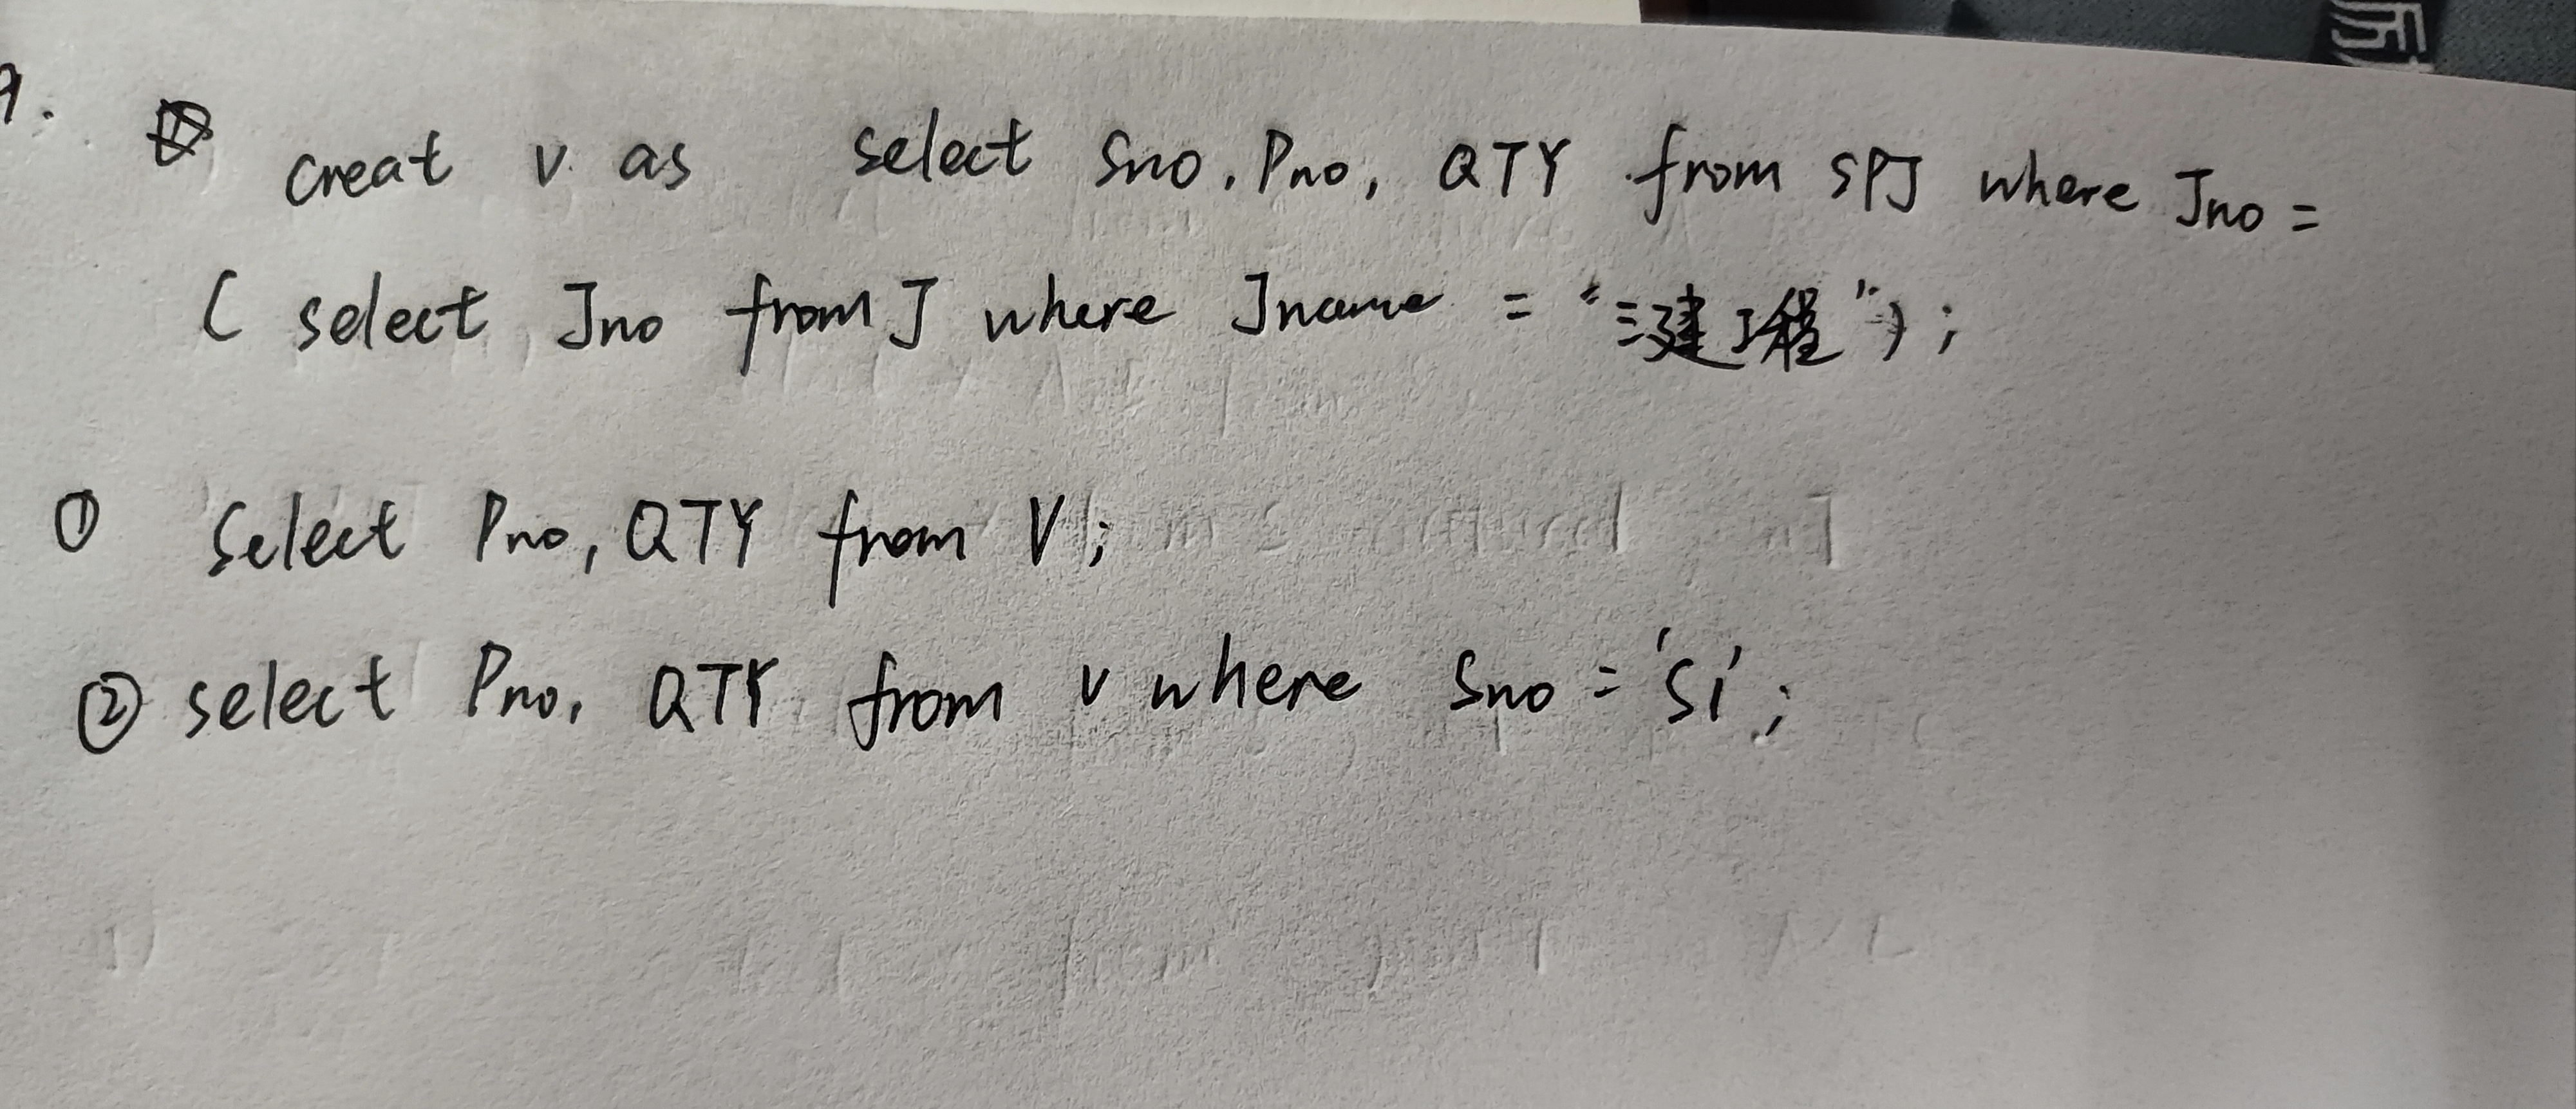 9. creat v as select Sno, Pno, QTY from SPJ where Jno =
( select Jno from J where Jname = "三建工程");
① Select Pno, QTY from V;
② select Pno, QTY from v where Sno = 'S1';